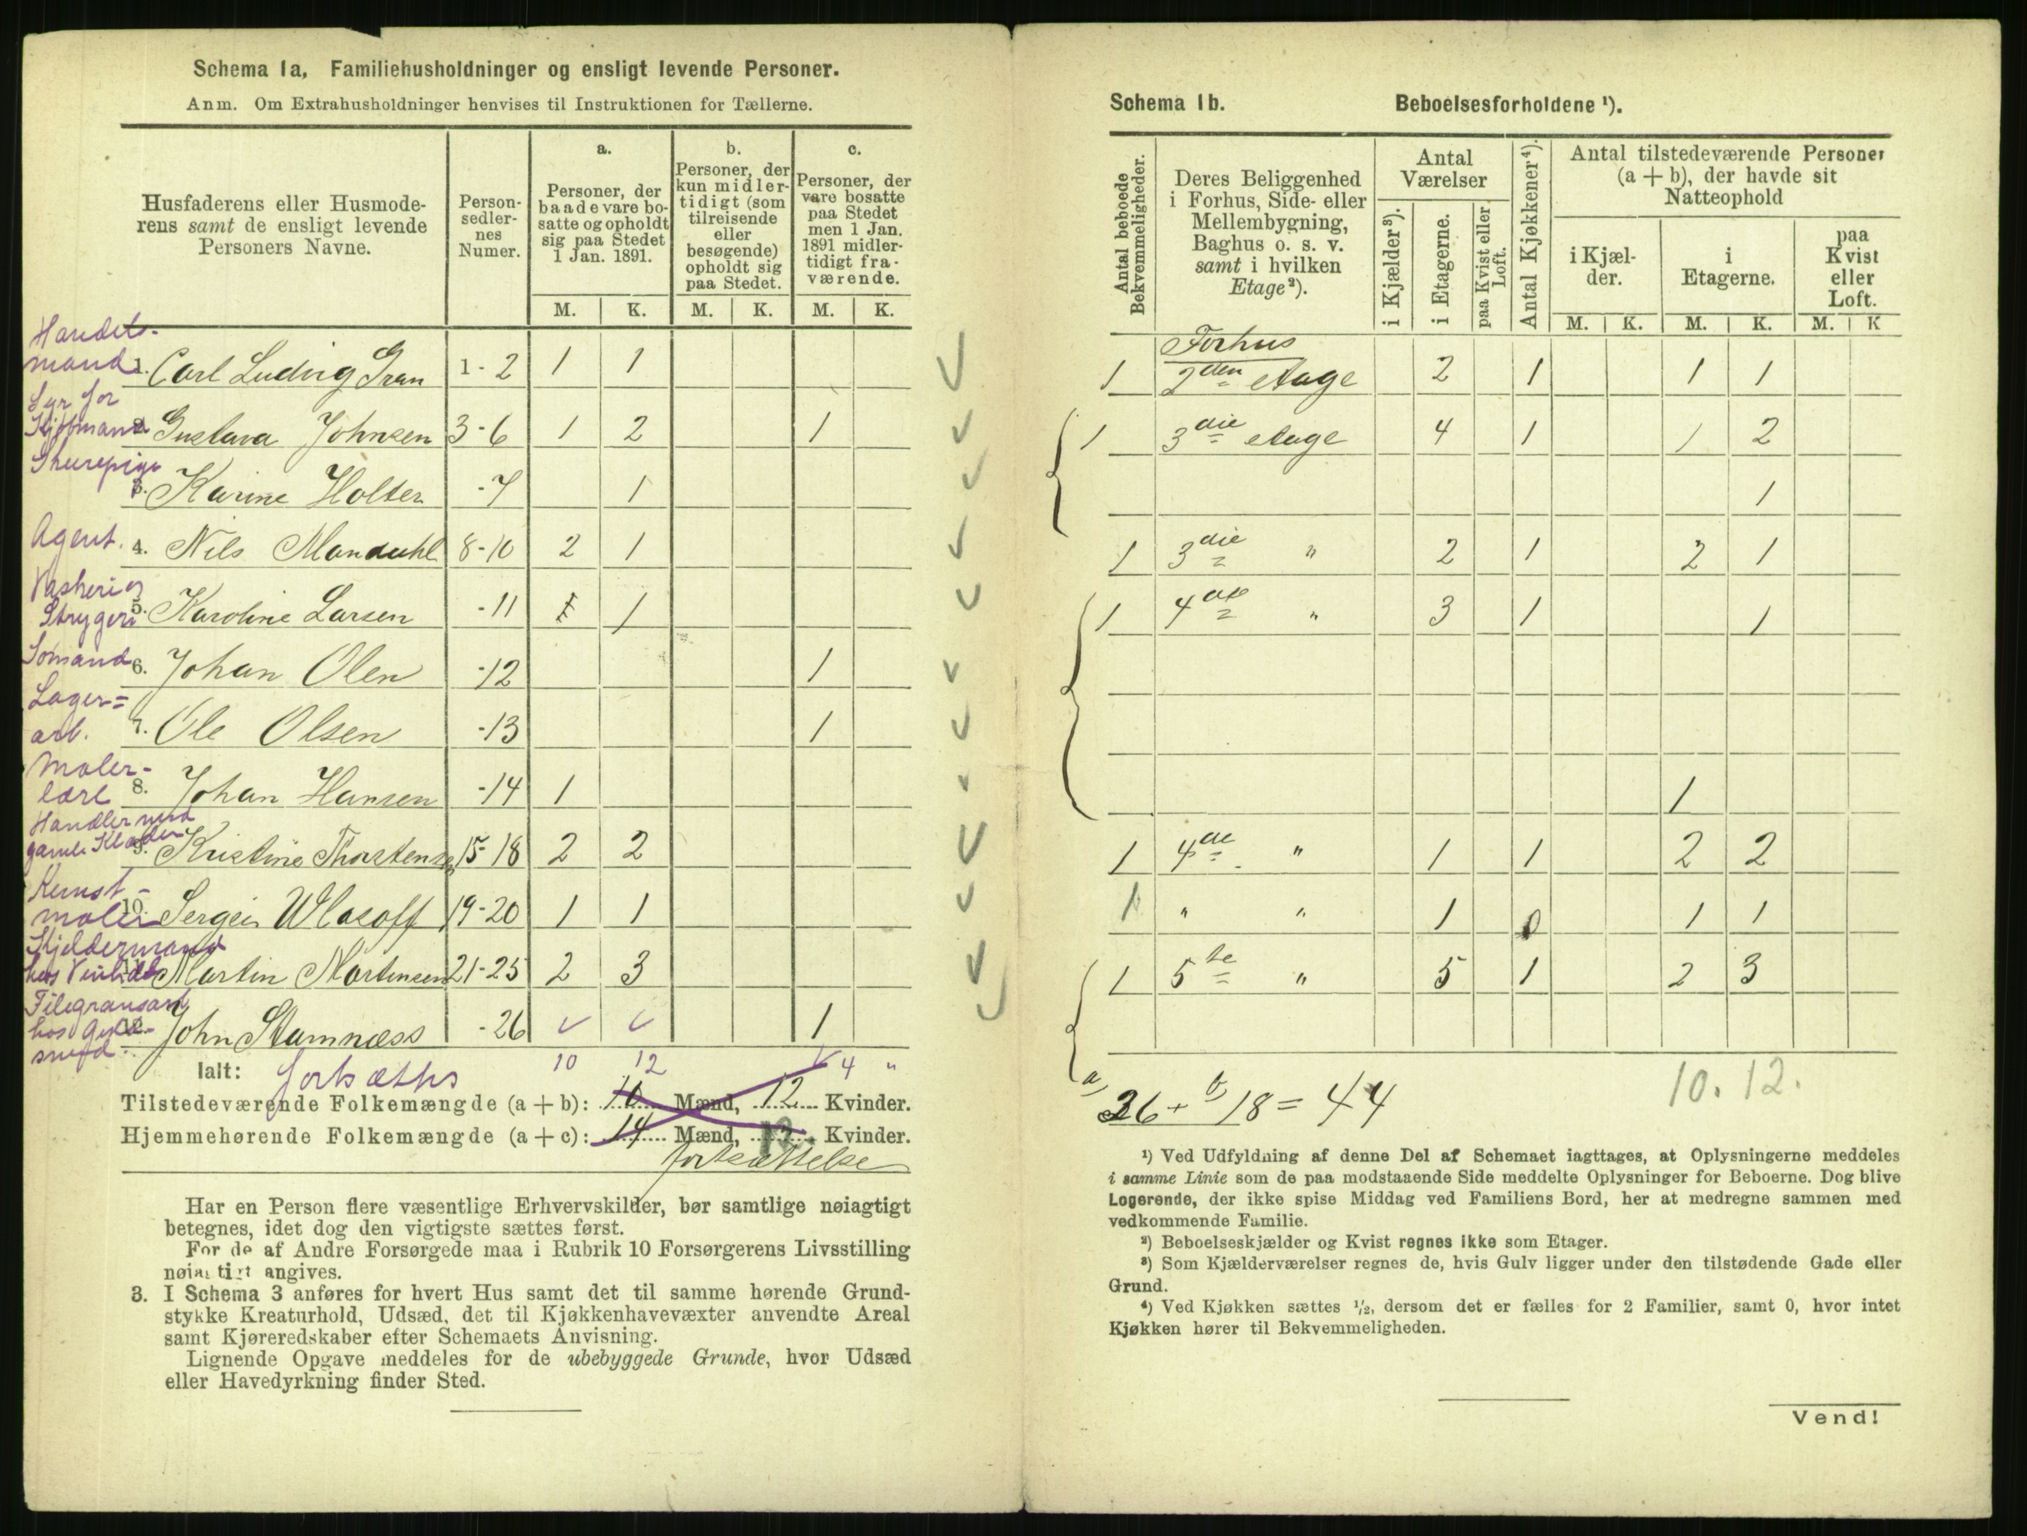 Schema 1a, Familiehusholdninger og ensligt levende Personer.
Anm. Om Extrahusholdninger henvises til Instruktionen for Tællerne.
Husfaderens eller Husmoderens samt de ensligt levende Personers Navne.
Personsedlernes Numer.
a. Personer, der baade vare bosatte og opholdt sig paa Stedet 1 Jan. 1891.
b. Personer, der kun midlertidigt (som tilreisende eller besøgende) opholdt sig paa Stedet.
c. Personer, der vare bosatte paa Stedet men 1 Jan. 1891 midlertidigt fraværende.
M. K. M. K. M. K.
Handelsmand 1. Carl Ludvig Gran 1-2 1 1
Kjøbmand 2. Gustava Johnsen 3-6 1 2 1
3. Karine Holter -7 1
Agent. 4. Nils Mandahl 8-10 2 1
Vaskeri og Strygeri 5. Karoline Larsen -11 1
Sømand 6. Johan Olen -12 1
Lager=arb. 7. Ole Olsen -13 1
Maler-lærl 8. Johan Hansen -14 1
Handler med gamle Klæder 9. Kristine Thorstensen 15-18 2 2
Kunst-maler 10. Sergei Wlasoff 19-20 1 1
Kjeldermand hos Vinhdl 11. Martin Mortensen 21-25 2 3
Filegransarb hos Guldsmed. 12. John Stamnæss -26 1
Ialt: fortsættes 10 12 4 "
Tilstedeværende Folkemængde (a + b): 10 Mænd, 12 Kvinder.
Hjemmehørende Folkemængde (a + c): 14 Mænd, 12 Kvinder.
fortsættelse
Har en Person flere væsentlige Erhvervskilder, bør samtlige nøiagtigt
betegnes, idet dog den vigtigste sættes først.
For de af Andre Forsørgede maa i Rubrik 10 Forsørgerens Livsstilling
nøiagtigt angives.
3. I Schema 3 anføres for hvert Hus samt det til samme hørende Grund-
stykke Kreaturhold, Udsæd, det til Kjøkkenhavevæxter anvendte Areal
samt Kjøreredskaber efter Schemaets Anvisning.
Lignende Opgave meddeles for de ubebyggede Grunde, hvor Udsæd
eller Havedyrkning finder Sted.
Schema 1b. Beboelsesforholdene ¹).
Antal beboede Bekvemmeligheder.
Deres Beliggenhed i Forhus, Side- eller Mellembygning, Baghus o. s. v. samt i hvilken Etage²).
Antal Værelser
i Kjælder³).
i Etagerne.
paa Kvist eller Loft.
Antal Kjøkkener⁴).
Antal tilstedeværende Personer (a + b), der havde sit Natteophold
i Kjælder.
i Etagerne.
paa Kvist eller Loft.
M. K. M. K. M. K
Forhus
1 2den etage 2 1 1 1
1 3die etage 4 1 1 2
1
1 3die " 2 1 2 1
1 4de " 3 1 1
1
1 4de " 1 1 2 2
1 " " 1 0 1 1
1 5te " 5 1 2 3
a) b)
26 + 18 = 44
10. 12.
¹) Ved Udfyldning af denne Del af Schemaet iagttages, at Oplysningerne meddeles
i samme Linie som de paa modstaaende Side meddelte Oplysninger for Beboerne. Dog blive
Logerende, der ikke spise Middag ved Familiens Bord, her at medregne sammen med
vedkommende Familie.
²) Beboelseskjælder og Kvist regnes ikke som Etager.
³) Som Kjælderværelser regnes de, hvis Gulv ligger under den tilstødende Gade eller
Grund.
⁴) Ved Kjøkken sættes ½, dersom det er fælles for 2 Familier, samt 0, hvor intet
Kjøkken hører til Bekvemmeligheden.
Vend!